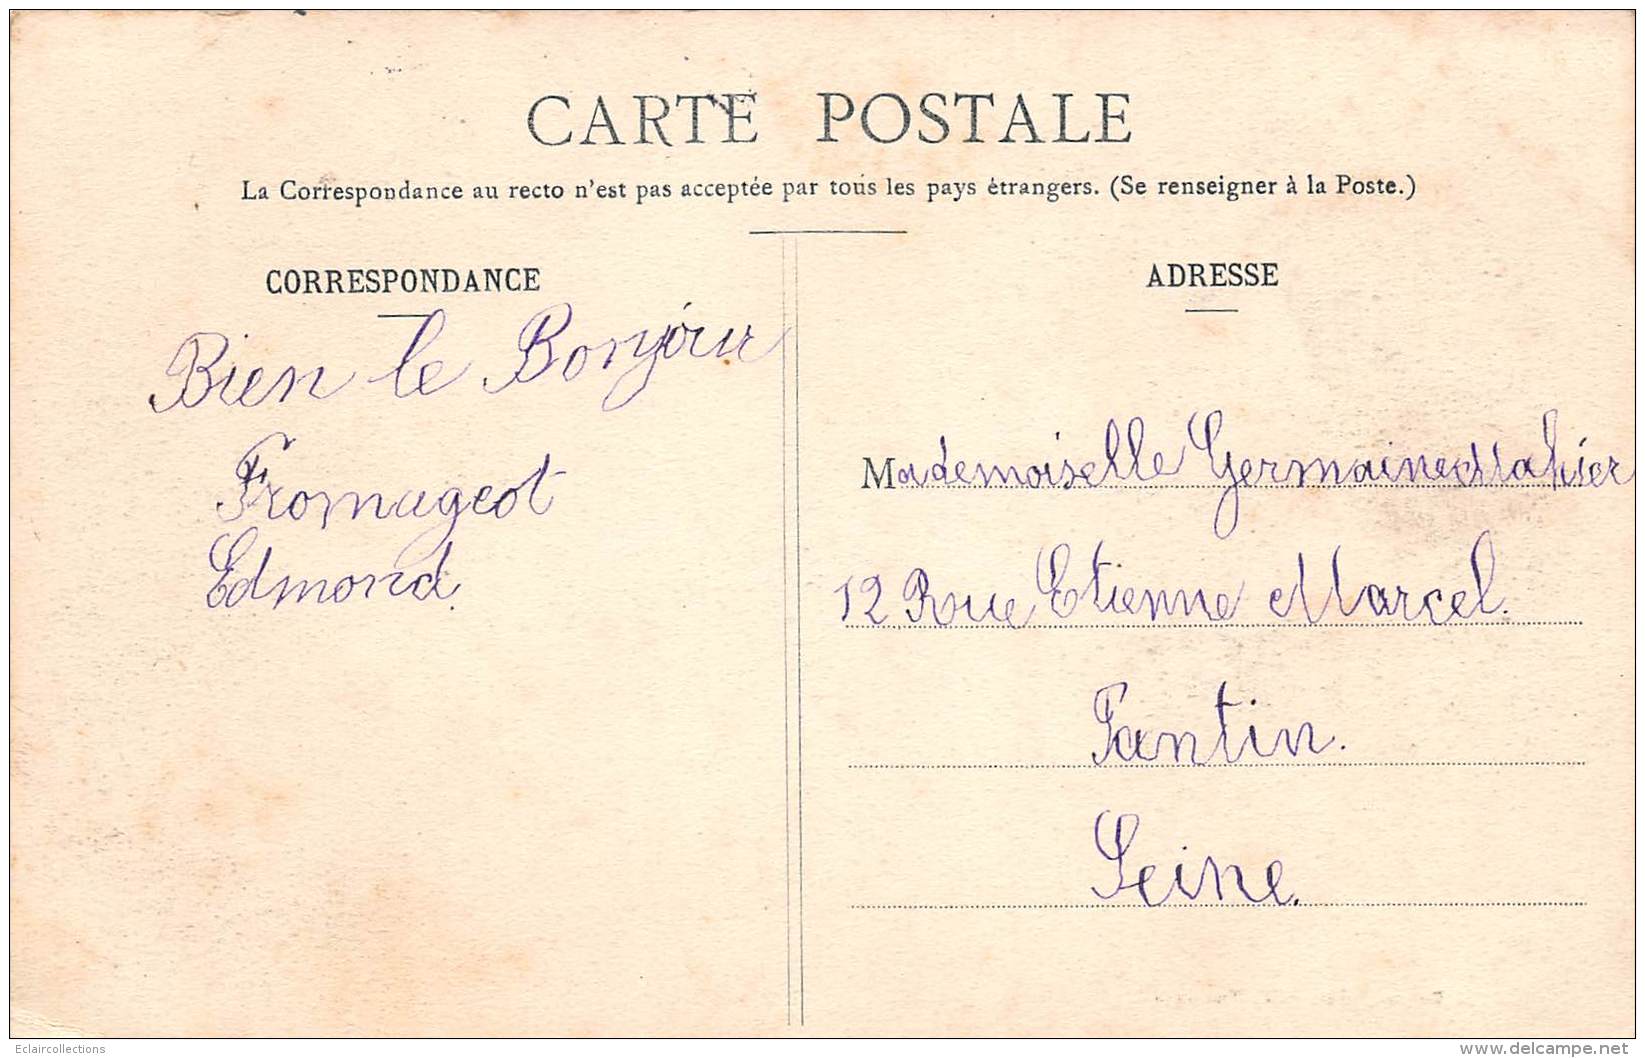 CARTE POSTALE
La Correspondance au recto n'est pas acceptée par tous les pays étrangers. (Se renseigner à la Poste.)
CORRESPONDANCE
Bien le Bonjour
Fromageot
Edmond.
ADRESSE
Mademoiselle Germaine Mahier
12 Rue Etienne Marcel.
Pantin.
Seine.
Eclaircollections
delcampe.net